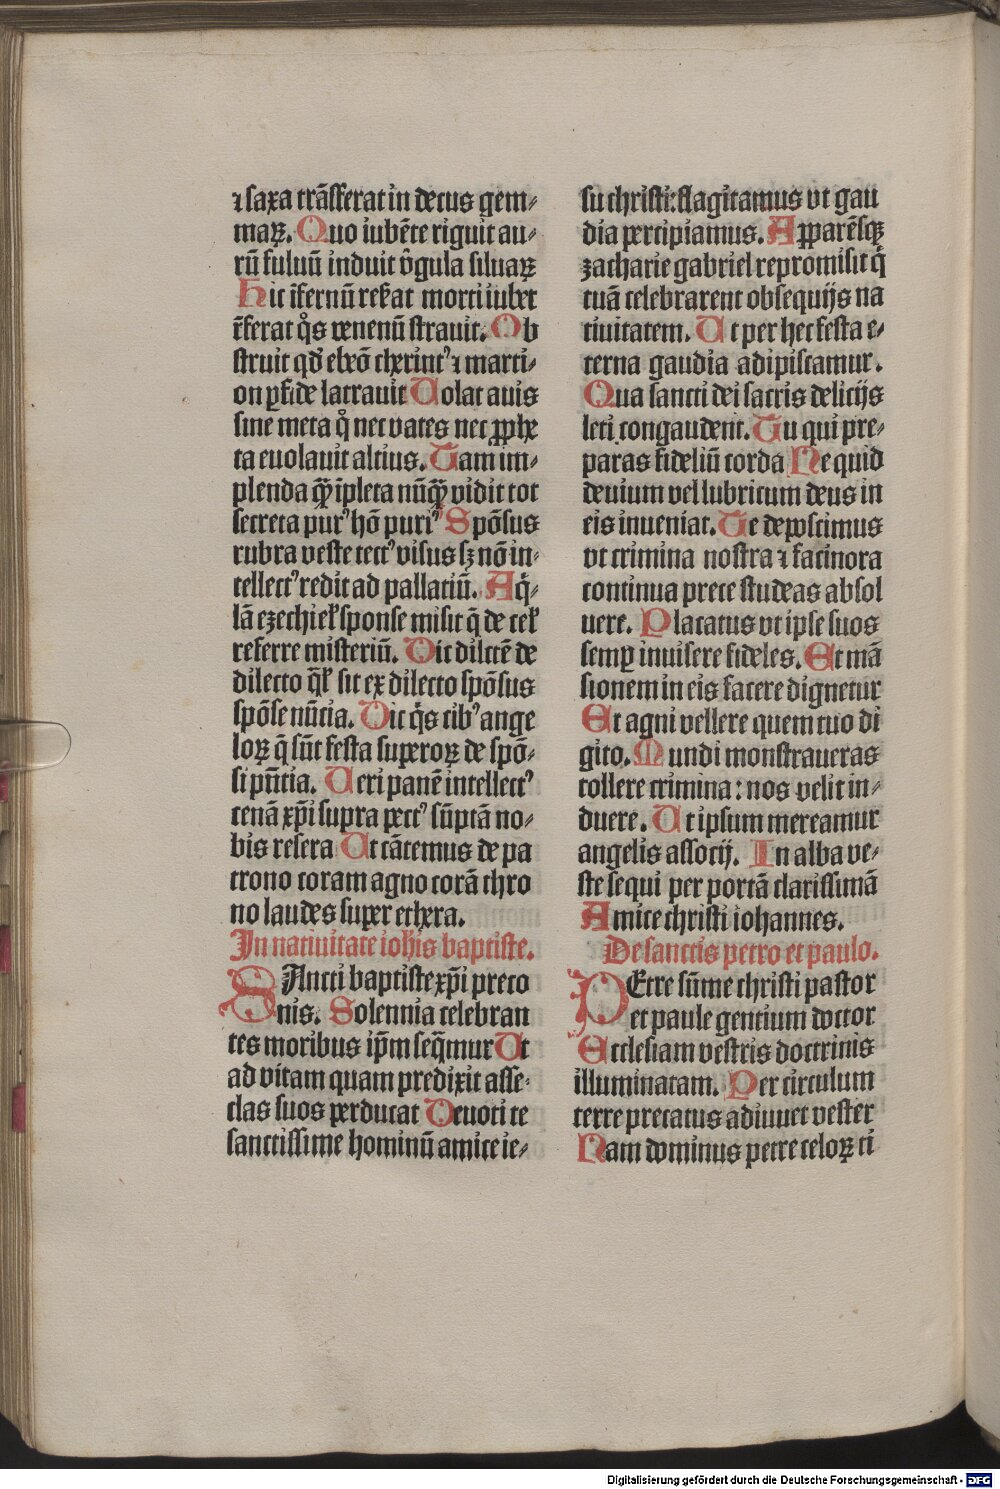 ⁊ saxa trãsferat in decus gem⸗
maꝝ. Quo iubẽte riguit au⸗
rũ fuluũ induit v̾gula siluaꝝ
Hic ĩfernũ reẜat morti iubet
ẽferat qͦs venenũ strauit. Ob
struit qd̾ ebeõ cherintꝰ ⁊ marti⸗
on ꝑfide latrauit Uolat auis
sine meta qͦ nec vates nec ꝓphe
ta euolauit altius. Tam im⸗
plenda qꝫ̃ ĩpleta nũqꝫ̃ vidit tot
secreta purꝰ hõ puriꝰ Spõsus
rubra veste tectꝰ visus sꝫ nõ in⸗
tellectꝰ redit ad pallatiũ. Aq̾⸗
lã ezechieľ sponse misit q̃ de ceľ
referre misteriũ. Dic dilctẽ de
dilecto q̃ľ sit ex dilecto spõsus
spõse nũcia. Dic q̾s cibꝰ ange
loꝝ q̃ sũt festa superoꝝ de spõ⸗
si pñtia. Ueri panẽ intellectꝰ
cenã xp̃i supra pectꝰ sũptã no⸗
bis resera Ut cãtemus de pa
trono coram agno corã thro
no laudes super ethera.
In natiuitate ioh̃is baptiste.
SAncti baptiste xp̃i preco
nis. Solennia celebran
tes moribus ip̃m seq̃mur Ut
ad vitam quam predixit asse⸗
clas suos perducat Deuoti te
sanctissime hominũ amice ie⸗
su christi: flagitamus vt gau
dia percipiamus. Apparẽsqꝫ
zacharie gabriel repromisit q̾
tuã celebrarent obsequijs na
tiuitatem. Ut per hec festa e⸗
terna gaudia adipiscamur.
Qua sancti dei sacris delicijs
leti congaudent. Tu qui pre⸗
paras fideliũ corda Ne quid
deuium vel lubricum deus in
eis inueniat. Te deposcimus
vt crimina nostra ⁊ facinora
continua prece studeas absol
uere. Placatus vt ipse suos
semꝑ inuisere fideles. Et mã
sionem in eis facere dignetur
Et agni vellere quem tuo di
gito. Mundi monstraueras
tollere crimina: nos velit in⸗
duere. Ut ipsum mereamur
angelis associj. In alba ve⸗
ste sequi per portã clarissimã
Amice christi iohannes.
De sanctis petro et paulo.
PEtre sũme christi pastor
et paule gentium doctor
Ecclesiam vestris doctrinis
illuminatam. Per circulum
terre precatus adiuuet vester
Nam dominus petre celoꝝ ti
Digitalisierung gefördert durch die Deutsche Forschungsgemeinschaft - DFG